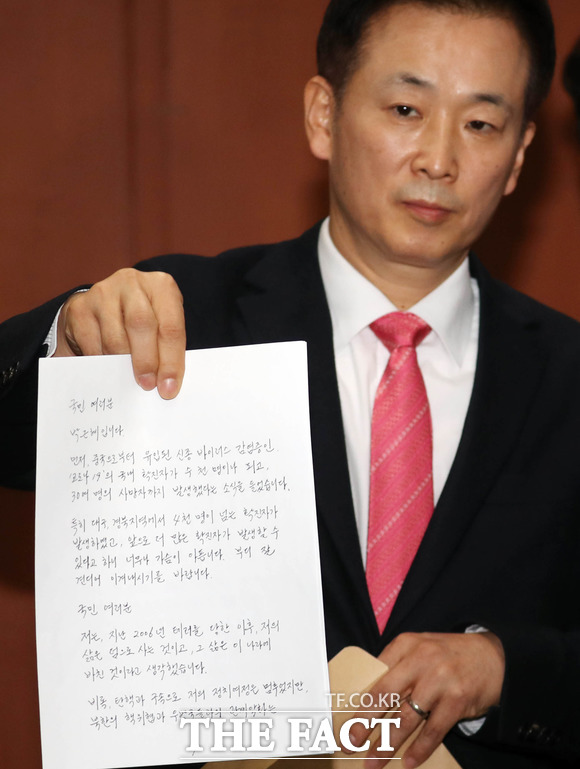 국민 여러분
박근혜입니다
먼저, 중국으로부터 유입된 신종 바이러스 감염증인
'코로나 19'의 국내 확진자가 수 천 명이나 되고,
30여 명의 사망자까지 발생했다는 소식을 들었습니다.
특히 대구, 경북지역에서 4천 명이 넘는 확진자가
발생하였고, 앞으로 더 많은 확진자가 발생할 수
있다고 하니 너무나 가슴이 아픕니다. 부디 잘
견디어 이겨내시기를 바랍니다.
국민 여러분
저는, 지난 2006년 테러를 당한 이후, 저의
삶은 덤으로 사는 것이고, 그 삶은 이 나라에
바친 것이라고 생각했습니다.
비록, 탄핵과 구속으로 저의 정치여정은 멈추었지만,
북한의 핵위협과
TF.CO.KR
THE FACT